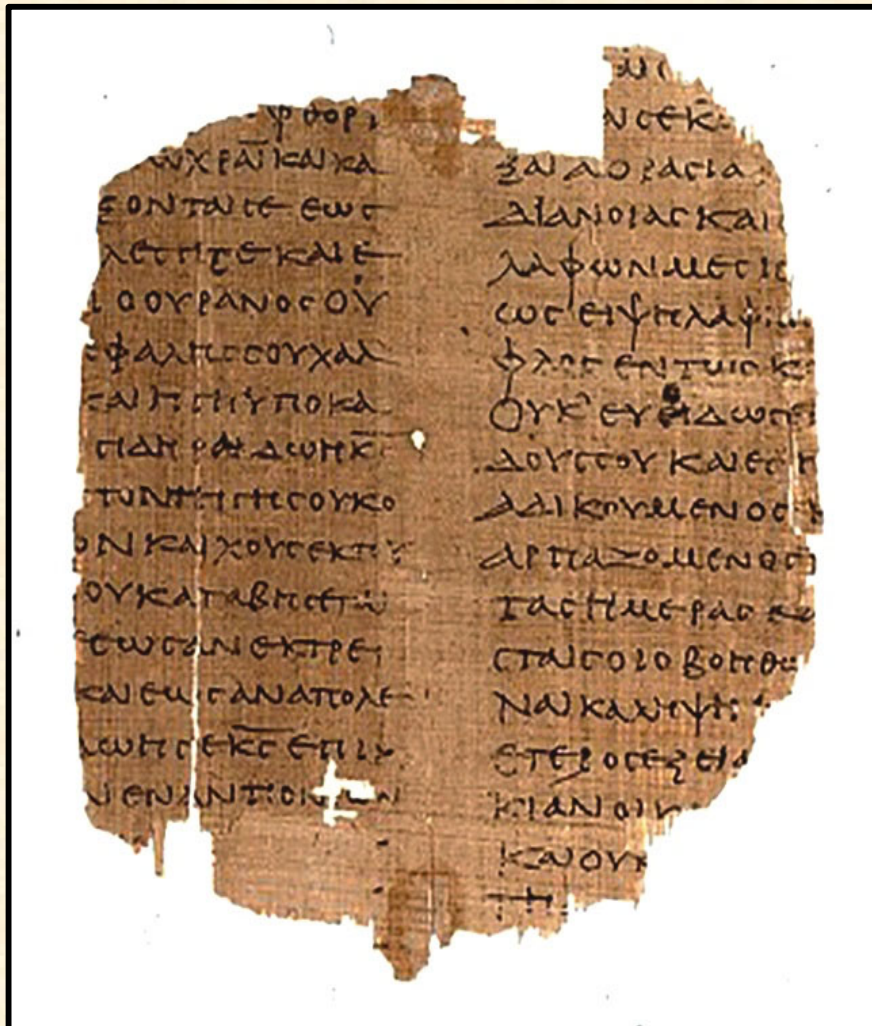 ΦΘΟΡΙ
ΩΧΡΑΙΚΑΙΚΑ
ΞΟΝΤΑΙϹΕΕΩϹ
ΛΕϹΗϹΕΚΑΙΕ
ΟΟΥΡΑΝΟϹΟΥ
ΦΑΛΗϹϹΟΥΧΑΛ
ΚΑΙΗΓΗΥΠΟΚΑ
ϹΙΔΗΡΑΔΩΗΚ̅Ϲ̅
ΤΟΝΤΗΓΗϹΟΥΚΟ
ΟΝΚΑΙΧΟΥϹΕΚΤΟΥ
ΟΥΚΑΤΑΒΗϹΕΤΑΙ
ϹΕΩϹΑΝΕΚΤΡΕΙ
ΚΑΙΕΩϹΑΝΑΠΟΛΕ
ΔΩΗϹΕΚ̅Ϲ̅ΕΠΙΚ
ΝΕΝΑΝΤΙΟΝΤΩΝ
ΑΙϹΕΚ̅
ΞΑΙΑΟΡΑϹΙΑ
ΔΙΑΝΟΙΑϹΚΑΙ
ΛΑΦΩΝΜΕϹΗ
ΩϹΕΙΨΗΛΑΦΗ
ΦΛΟϹΕΝΤΩΙϹΚ
ΟΥΚΕΥΕΙΔΩϹΕΙ
ΔΟΥϹϹΟΥΚΑΙΕϹΗ
ΑΔΙΚΟΥΜΕΝΟϹΚ
ΑΡΠΑΖΟΜΕΝΟϹΠ
ΤΑϹΗΜΕΡΑϹΚΑ
ϹΤΑΙϹΟΙΟΒΟΗΘΩ
ΝΑΙΚΑΛΗΨΗ
ΕΤΕΡΟϹΕΞΕΙΑ
ΚΙΑΝΟΙΚ
ΚΑΙΟΥΚ
ΤΗ